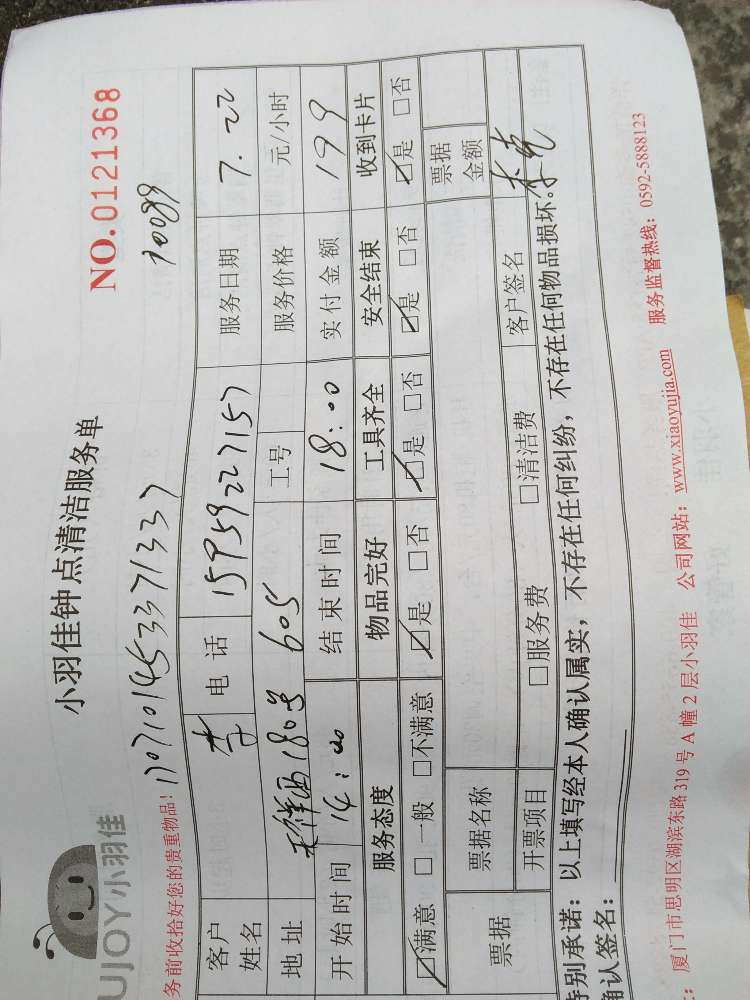 UJOY小羽佳
小羽佳钟点清洁服务单
NO.0121368
务前收拾好您的贵重物品!
170710145337133
70099
客户姓名 李 电话 15959227157 服务日期 7.22
地址 180号 605 工号 服务价格 元/小时
开始时间 14:00 结束时间 18:00 实付金额 199
服务态度 物品完好 工具齐全 安全结束 收到卡片
☑满意 □一般 □不满意 ☑是 □否 ☑是 □否 ☑是 □否 ☑是 □否
票据 票据名称 票据金额
开票项目 □服务费 □清洁费 客户签名
特别承诺:以上填写经本人确认属实,不存在任何纠纷,不存在任何物品损坏.
确认签名:
:厦门市思明区湖滨东路319号A幢2层小羽佳 公司网站:www.xiaoyujia.com 服务监督热线:0592-5888123